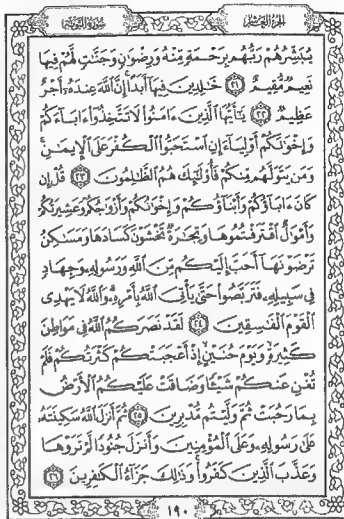 الجزء العاشر
سورة التوبة
يُبَشِّرُهُمْ رَبُّهُم بِرَحْمَةٍ مِّنْهُ وَرِضْوَانٍ وَجَنَّاتٍ لَّهُمْ فِيهَا
نَعِيمٌ مُّقِيمٌ ٢١ خَالِدِينَ فِيهَا أَبَدًا إِنَّ اللَّهَ عِندَهُ أَجْرٌ
عَظِيمٌ ٢٢ يَا أَيُّهَا الَّذِينَ ءَامَنُوا لَا تَتَّخِذُوا ءَابَاءَكُمْ
وَإِخْوَانَكُمْ أَوْلِيَاءَ إِنِ اسْتَحَبُّوا الْكُفْرَ عَلَى الْإِيمَانِ
وَمَن يَتَوَلَّهُم مِّنكُمْ فَأُولَٰئِكَ هُمُ الظَّالِمُونَ ٢٣ قُلْ إِن
كَانَ ءَابَاؤُكُمْ وَأَبْنَاؤُكُمْ وَإِخْوَانُكُمْ وَأَزْوَاجُكُمْ وَعَشِيرَتُكُمْ
وَأَمْوَالٌ اقْتَرَفْتُمُوهَا وَتِجَارَةٌ تَخْشَوْنَ كَسَادَهَا وَمَسَاكِنُ
تَرْضَوْنَهَا أَحَبَّ إِلَيْكُم مِّنَ اللَّهِ وَرَسُولِهِ وَجِهَادٍ
فِي سَبِيلِهِ فَتَرَبَّصُوا حَتَّىٰ يَأْتِيَ اللَّهُ بِأَمْرِهِ وَاللَّهُ لَا يَهْدِي
الْقَوْمَ الْفَاسِقِينَ ٢٤ لَقَدْ نَصَرَكُمُ اللَّهُ فِي مَوَاطِنَ
كَثِيرَةٍ وَيَوْمَ حُنَيْنٍ إِذْ أَعْجَبَتْكُمْ كَثْرَتُكُمْ فَلَمْ
تُغْنِ عَنكُمْ شَيْئًا وَضَاقَتْ عَلَيْكُمُ الْأَرْضُ
بِمَا رَحُبَتْ ثُمَّ وَلَّيْتُم مُّدْبِرِينَ ٢٥ ثُمَّ أَنزَلَ اللَّهُ سَكِينَتَهُ
عَلَىٰ رَسُولِهِ وَعَلَى الْمُؤْمِنِينَ وَأَنزَلَ جُنُودًا لَّمْ تَرَوْهَا
وَعَذَّبَ الَّذِينَ كَفَرُوا وَذَٰلِكَ جَزَاءُ الْكَافِرِينَ ٢٦
١٩٠